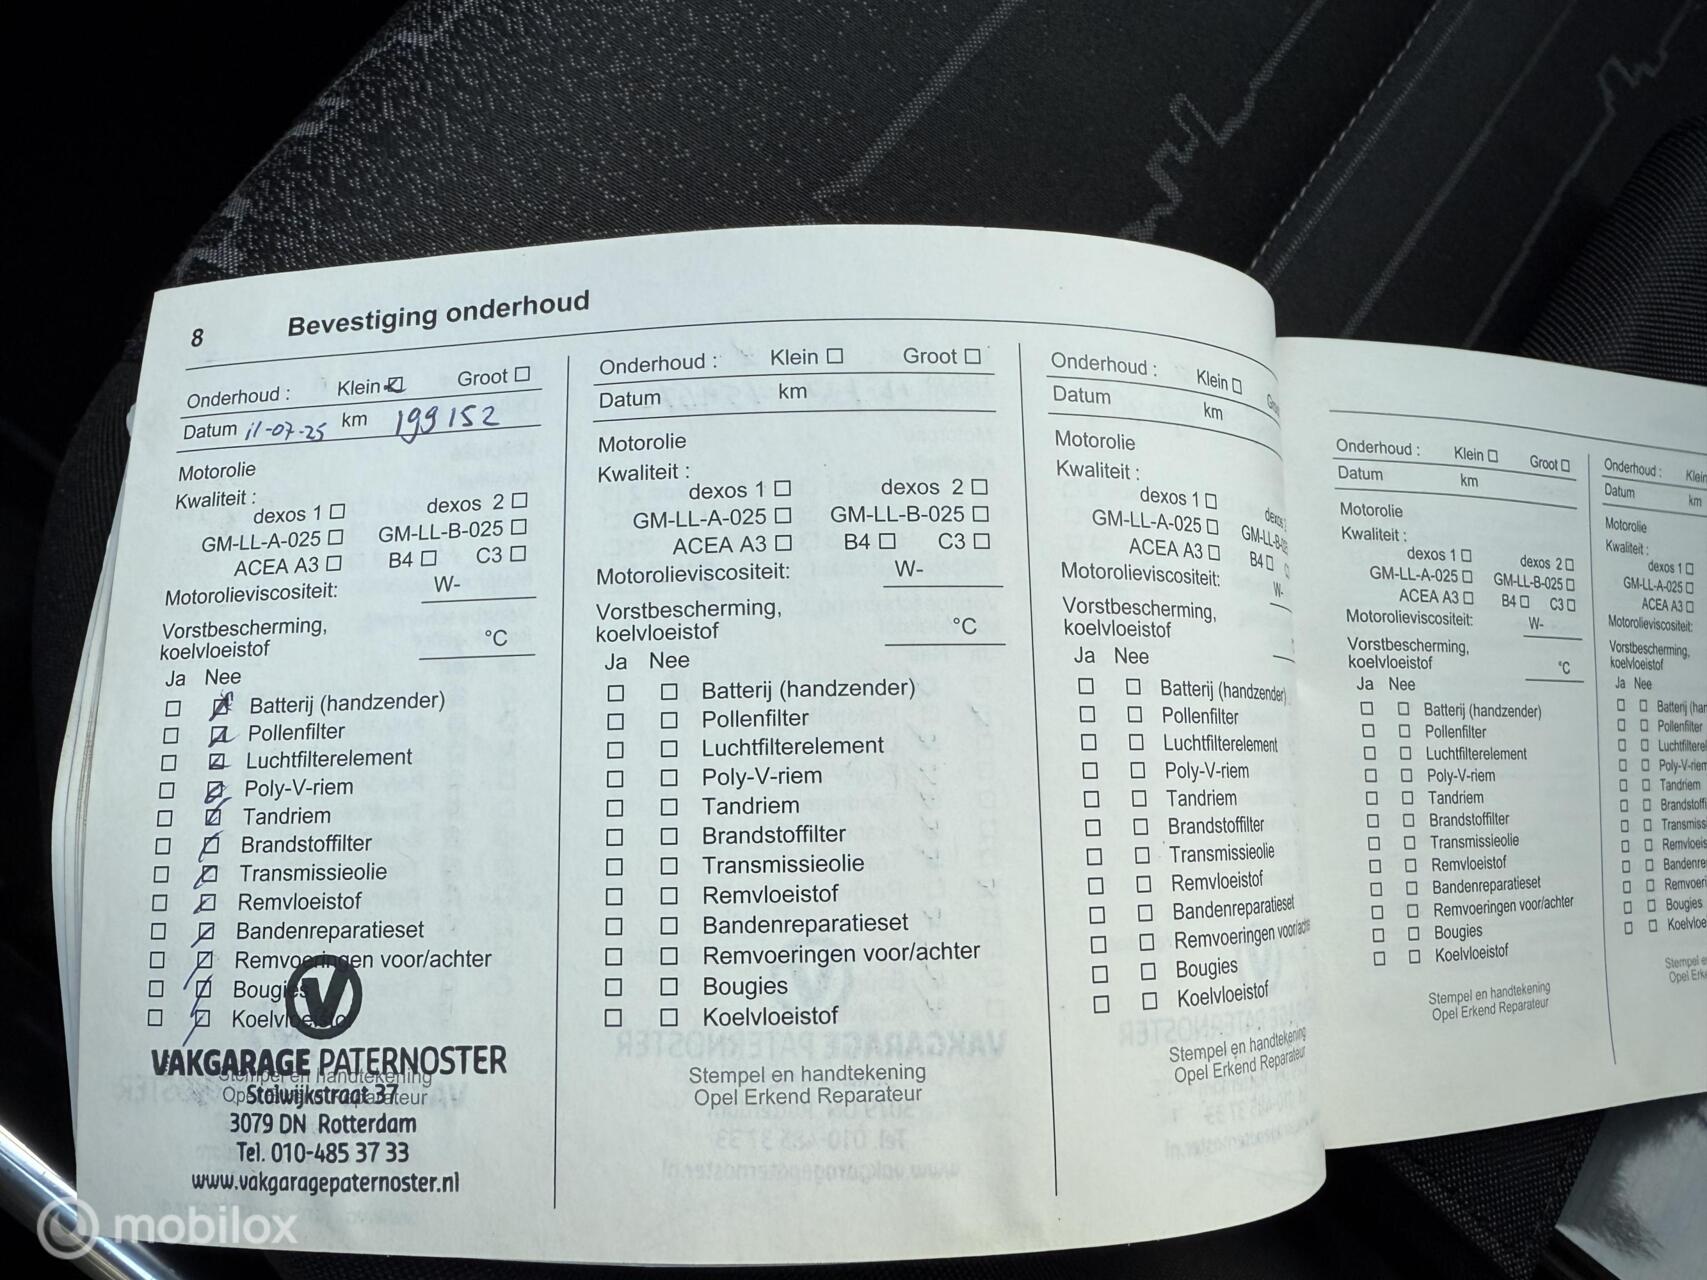 8 Bevestiging onderhoud
Onderhoud : Klein Groot
Datum 11-07-25 km 199152
Motorolie
Kwaliteit :
dexos 1 dexos 2
GM-LL-A-025 GM-LL-B-025
ACEA A3 B4 C3
Motorolieviscositeit: W-
Vorstbescherming,
koelvloeistof °C
Ja Nee
Batterij (handzender)
Pollenfilter
Luchtfilterelement
Poly-V-riem
Tandriem
Brandstoffilter
Transmissieolie
Remvloeistof
Bandenreparatieset
Remvoeringen voor/achter
Bougies
Koelvloeistof
VAKGARAGE PATERNOSTER
Stempel en handtekening
Opel Erkend Reparateur
Stolwijkstraat 37
3079 DN Rotterdam
Tel. 010-485 37 33
www.vakgaragepaternoster.nl
Onderhoud : Klein Groot
Datum km
Motorolie
Kwaliteit :
dexos 1 dexos 2
GM-LL-A-025 GM-LL-B-025
ACEA A3 B4 C3
Motorolieviscositeit: W-
Vorstbescherming,
koelvloeistof °C
Ja Nee
Batterij (handzender)
Pollenfilter
Luchtfilterelement
Poly-V-riem
Tandriem
Brandstoffilter
Transmissieolie
Remvloeistof
Bandenreparatieset
Remvoeringen voor/achter
Bougies
Koelvloeistof
Stempel en handtekening
Opel Erkend Reparateur
Onderhoud : Klein
Datum km
Motorolie
Kwaliteit :
dexos 1 dexos
GM-LL-A-025 GM-LL-B-025
ACEA A3 B4
Motorolieviscositeit: W-
Vorstbescherming,
koelvloeistof
Ja Nee
Batterij (handzender)
Pollenfilter
Luchtfilterelement
Poly-V-riem
Tandriem
Brandstoffilter
Transmissieolie
Remvloeistof
Bandenreparatieset
Remvoeringen voor/achter
Bougies
Koelvloeistof
Stempel en handtekening
Opel Erkend Reparateur
Onderhoud : Klein Groot
Datum km
Motorolie
Kwaliteit :
dexos 1 dexos 2
GM-LL-A-025 GM-LL-B-025
ACEA A3 B4 C3
Motorolieviscositeit: W-
Vorstbescherming,
koelvloeistof °C
Ja Nee
Batterij (handzender)
Pollenfilter
Luchtfilterelement
Poly-V-riem
Tandriem
Brandstoffilter
Transmissieolie
Remvloeistof
Bandenreparatieset
Remvoeringen voor/achter
Bougies
Koelvloeistof
Stempel en handtekening
Opel Erkend Reparateur
Onderhoud : Klein
Datum km
Motorolie
Kwaliteit :
dexos 1
GM-LL-A-025
ACEA A3
Motorolieviscositeit:
Vorstbescherming,
koelvloeistof
Ja Nee
Batterij (har
Pollenfilter
Luchtfilterel
Poly-V-riem
Tandriem
Brandstoffi
Transmiss
Remvloeis
Bandenre
Remvoeri
Bougies
Koelvloe
Stempel e
Opel Erk
mobilox